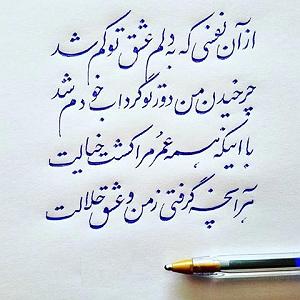 از آن نفسی که به دلم عشق تو کم شد
چرخیدن من دور تو گرداب خودم شد
با اینکه همه عمر مرا کشت خیالت
هر آنچه گرفتی ز من و عشق حلالت